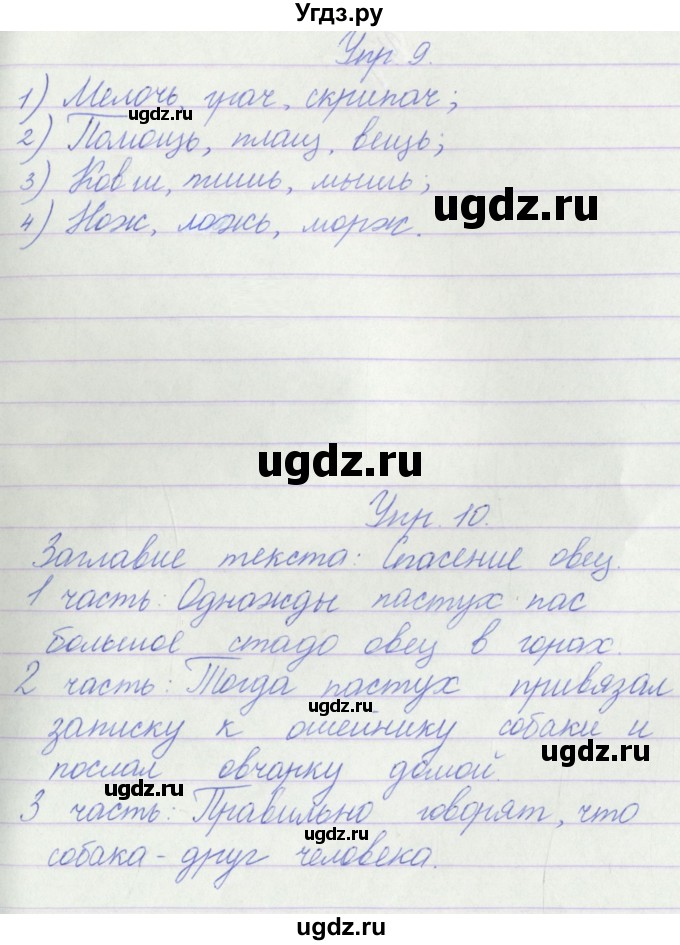 Угдз.ру
Упр 9.
1) Мелочь, грач, скрипач;
ugdz.ru
2) Помощь, плащ, вещь;
3) Ковш, тишь, мышь;
ugdz.ru
4) Нож, ложь, морж.
ugdz.ru
Упр. 10.
Заглавие текста: Спасение овец.
ugdz.ru
1 часть: Однажды пастух пас
большое стадо овец в горах.
2 часть: Тогда пастух привязал
ugdz.ru
записку к ошейнику собаки и
ugdz.ru
послал овчарку домой.
3 часть: Правильно говорят, что
ugdz.ru
собака - друг человека.
ugdz.ru